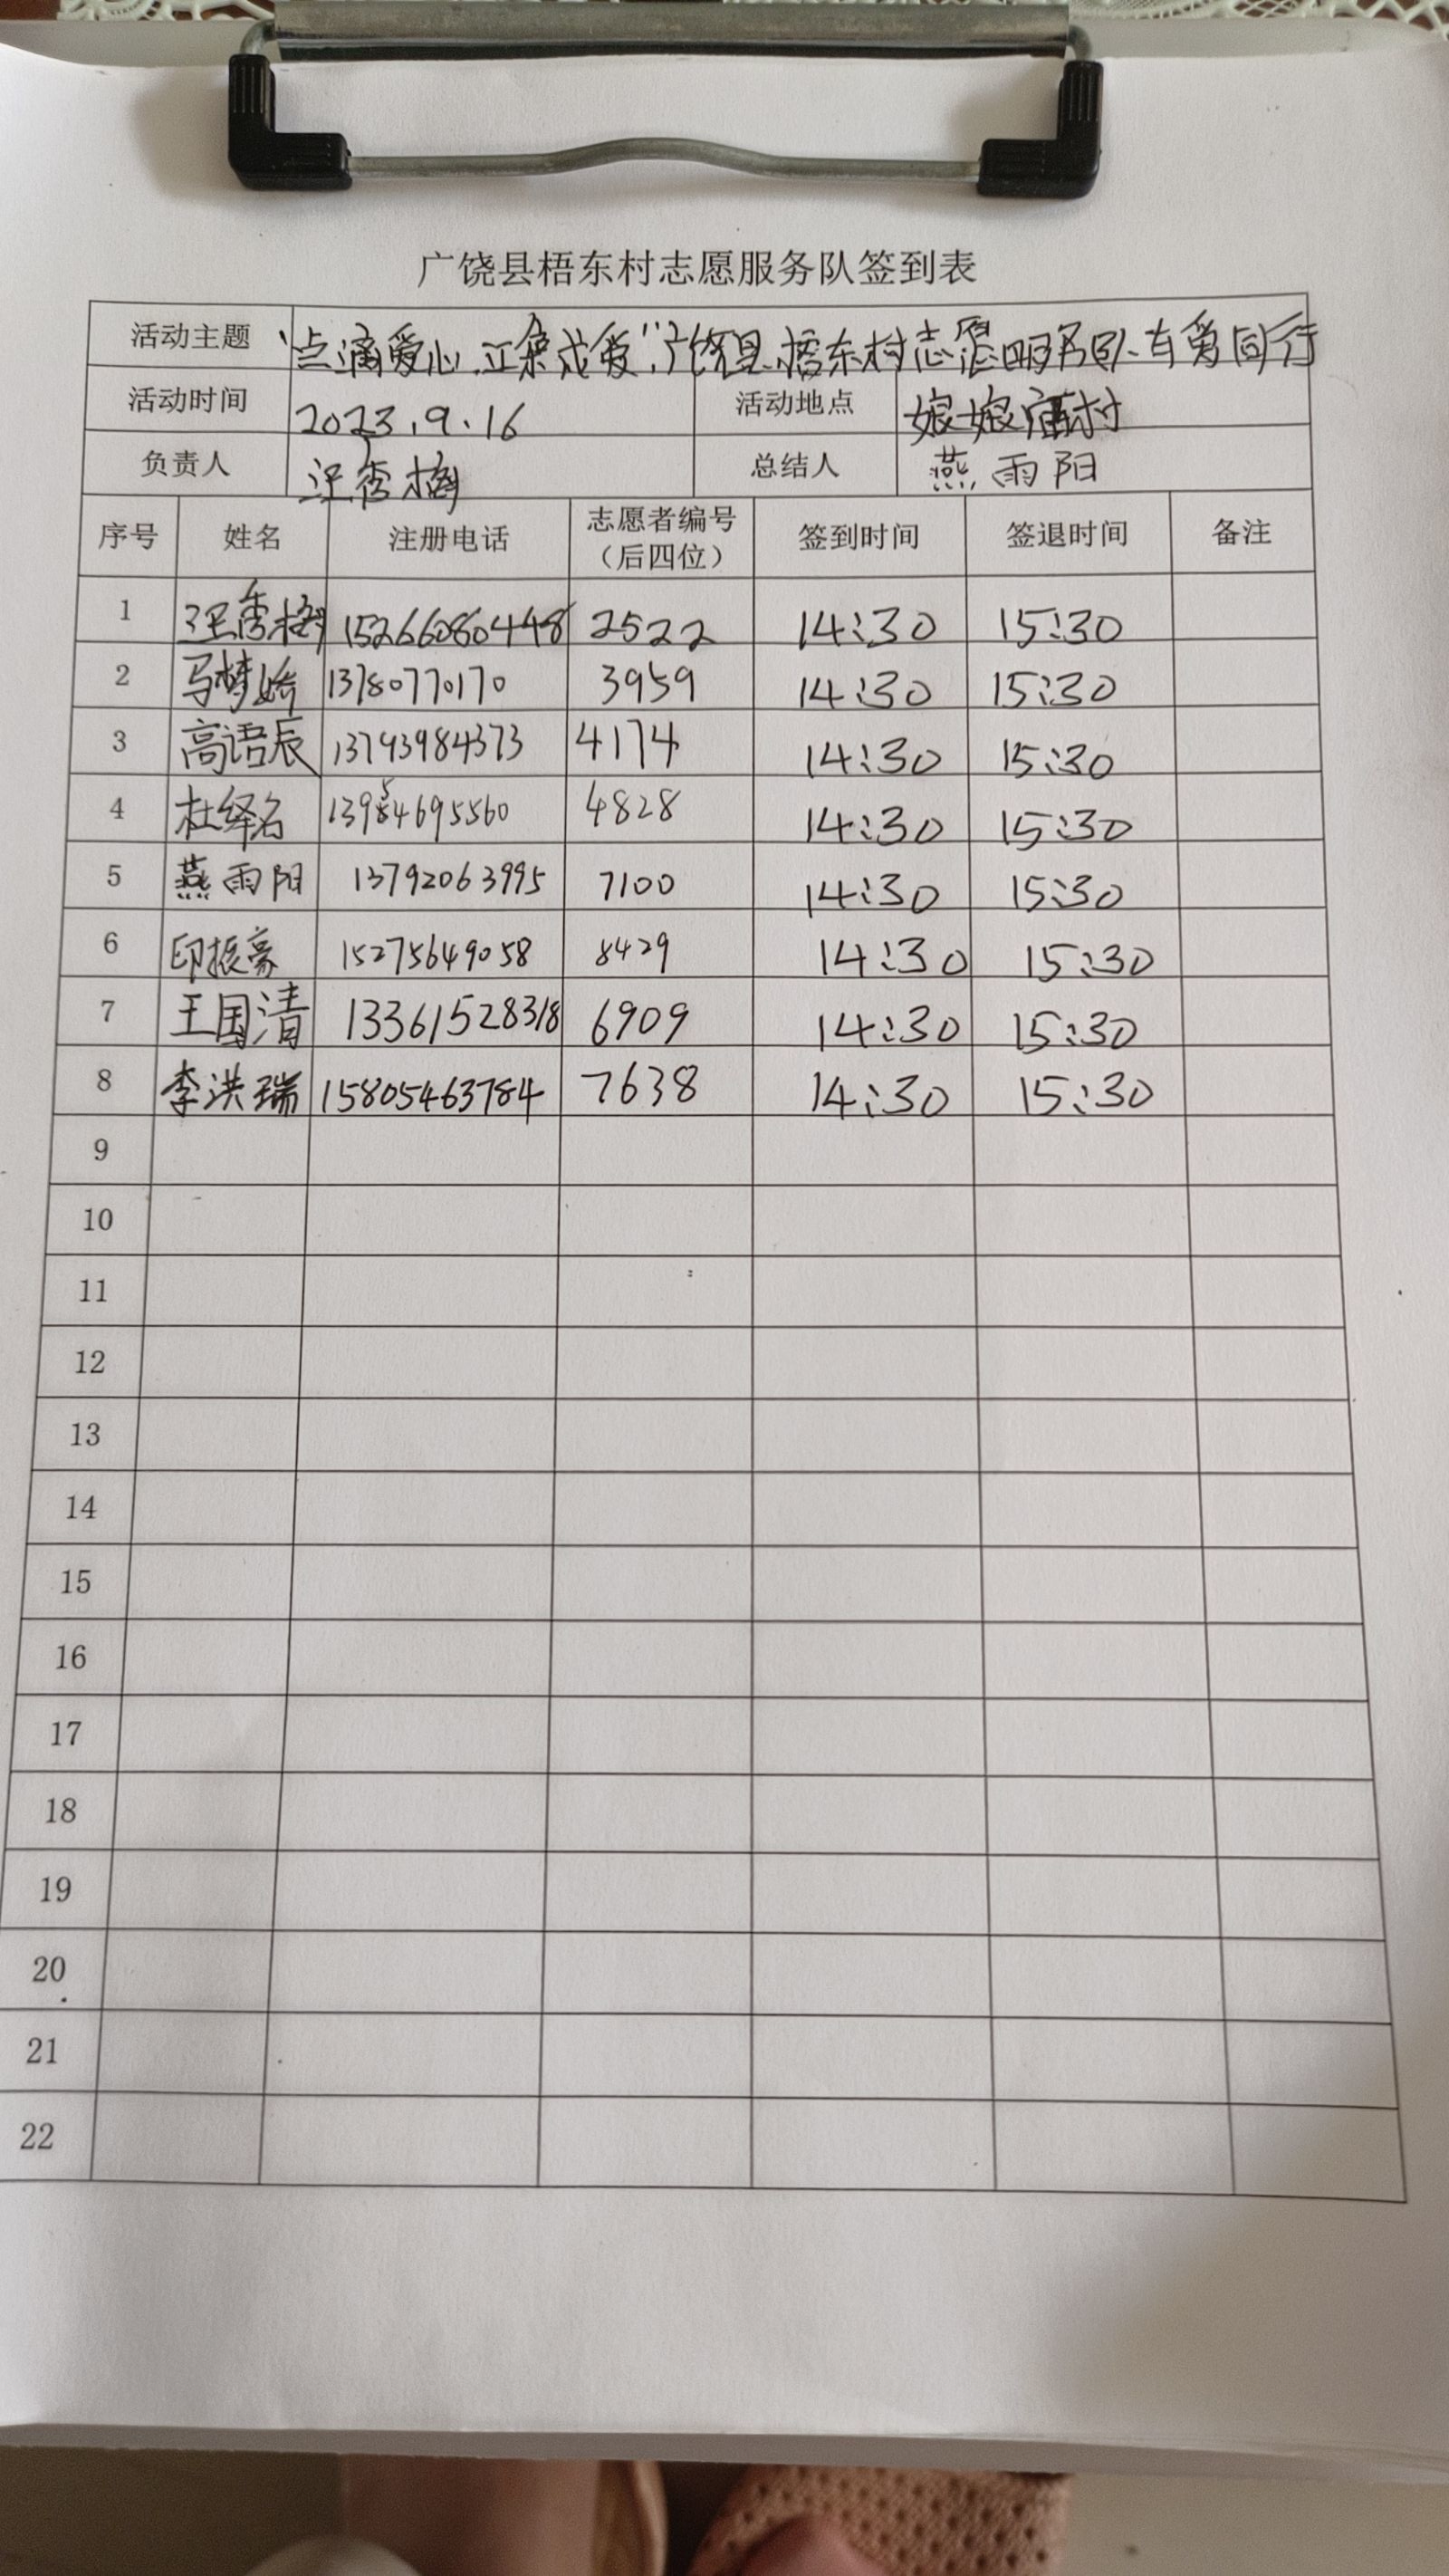 广饶县梧东村志愿服务队签到表
活动主题 "点滴爱心,汇聚成爱"广饶县梧东村志愿服务队与爱同行
活动时间 2023.9.16 活动地点 娘娘庙村
负责人 汪秀梅 总结人 燕雨阳
序号 姓名 注册电话 志愿者编号（后四位） 签到时间 签退时间 备注
1 汪秀梅 15266080448 2522 14:30 15:30
2 马梦娇 13780770170 3959 14:30 15:30
3 高语辰 13793984373 4174 14:30 15:30
4 杜绎名 13954695560 4828 14:30 15:30
5 燕雨阳 13792063995 7100 14:30 15:30
6 印振豪 15275649058 8429 14:30 15:30
7 王国清 13361528318 6909 14:30 15:30
8 李洪瑞 15805463784 7638 14:30 15:30
9
10
11
12
13
14
15
16
17
18
19
20
21
22